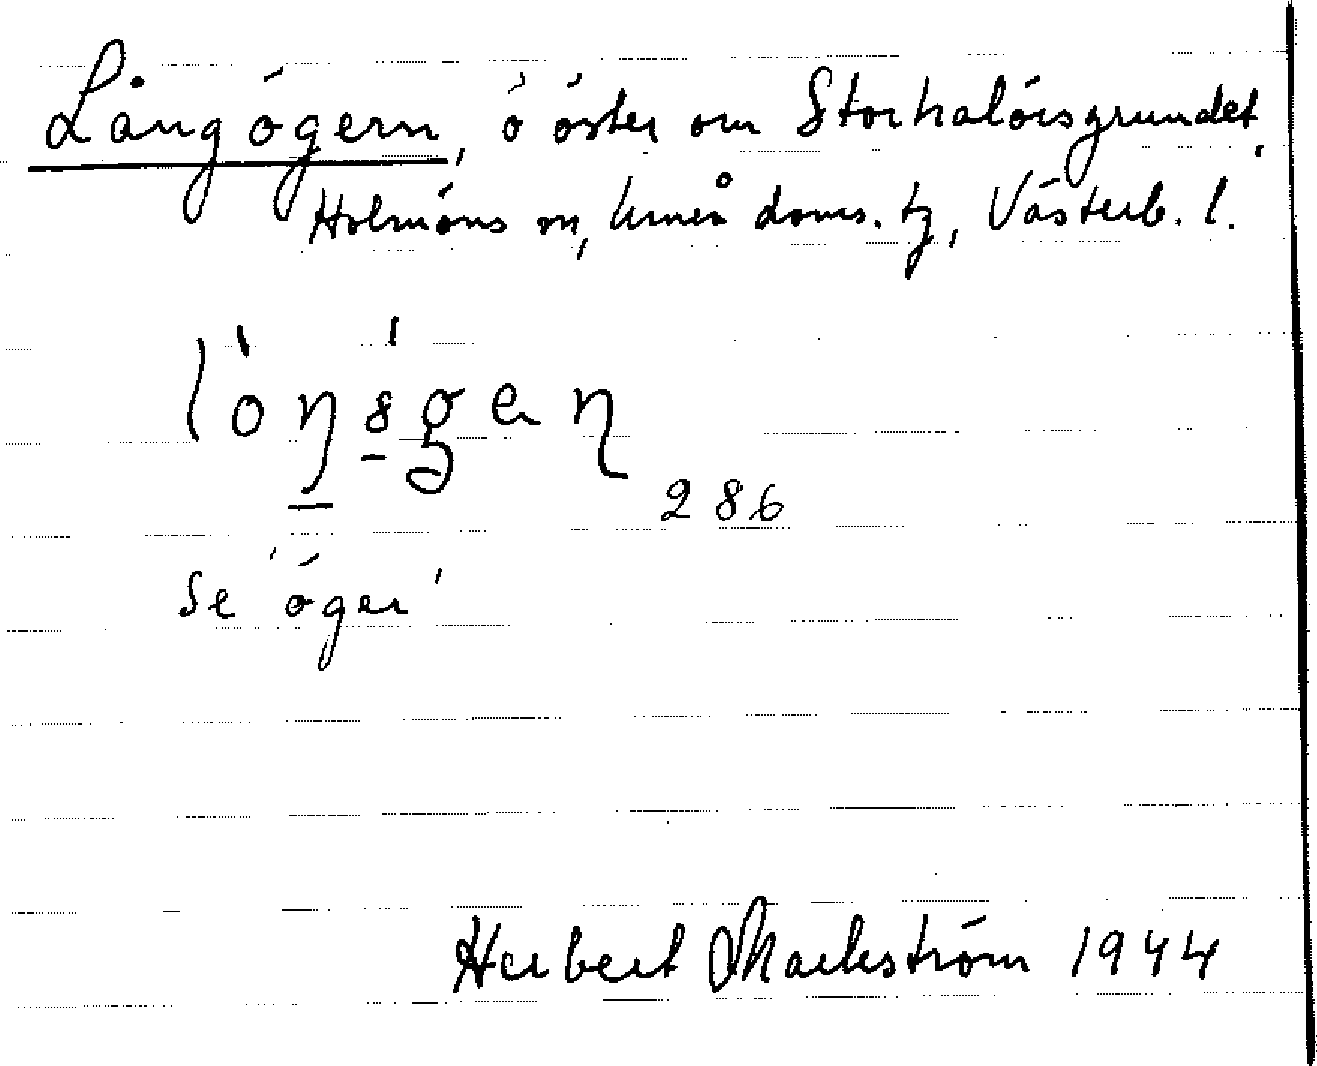 Långögern, ö öster om Storhalörsgrundet,
Holmöns sn, Umeå doms. tg, Västerb. l.
286
se 'öger'
Herbert Markström 1944